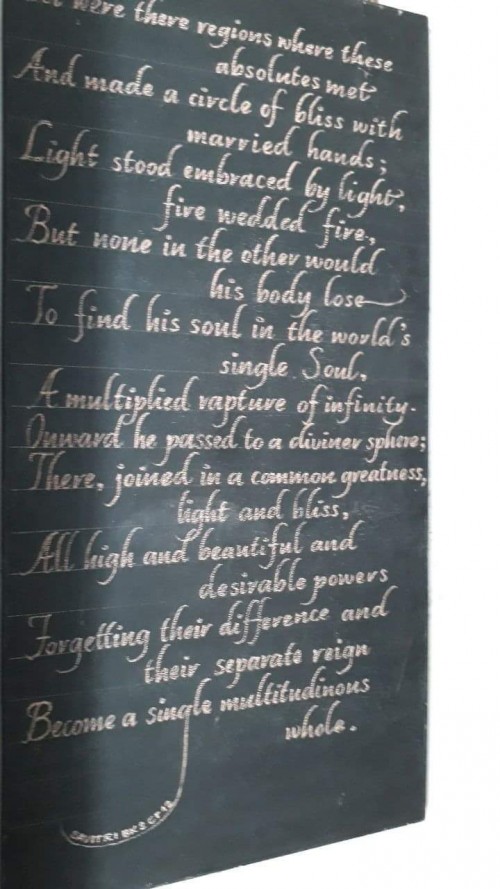 were there regions where these
absolutes met
And made a circle of bliss with
married hands;
Light stood embraced by light,
fire wedded fire,
But none in the other would
his body lose
To find his soul in the world's
single Soul,
A multiplied rapture of infinity.
Onward he passed to a diviner sphere;
There, joined in a common greatness,
light and bliss,
All high and beautiful and
desirable powers
Forgetting their difference and
their separate reign
Become a single multitudinous
whole.
SAVITRI